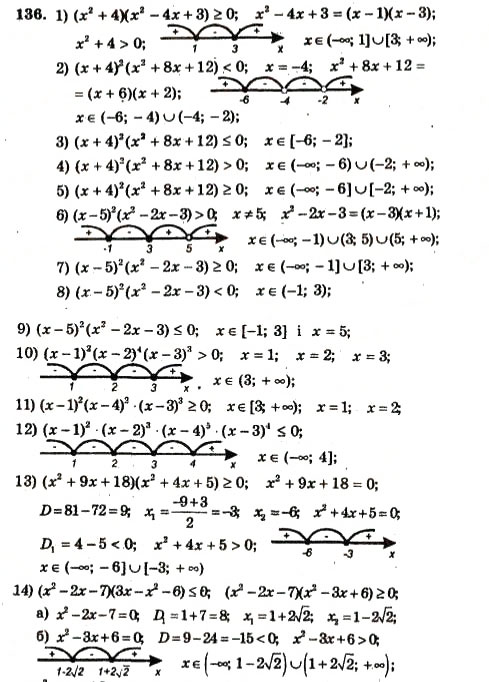 136. 1) (x² + 4)(x² – 4x + 3) ≥ 0; x² – 4x + 3 = (x – 1)(x – 3);
x² + 4 > 0; + – + 1 3 x x∈(–∞; 1]∪[3; +∞);
2) (x + 4)²(x² + 8x + 12) < 0; x = –4; x² + 8x + 12 =
= (x + 6)(x + 2); + – – + -6 -4 -2 x
x∈(–6; –4)∪(–4; –2);
3) (x + 4)²(x² + 8x + 12) ≤ 0; x∈[–6; –2];
4) (x + 4)²(x² + 8x + 12) > 0; x∈(–∞; –6)∪(–2; +∞);
5) (x + 4)²(x² + 8x + 12) ≥ 0; x∈(–∞; –6]∪[–2; +∞);
6) (x – 5)²(x² – 2x – 3) > 0; x ≠ 5; x² – 2x – 3 = (x – 3)(x + 1);
+ – + + -1 3 5 x x∈(–∞; –1)∪(3; 5)∪(5; +∞);
7) (x – 5)²(x² – 2x – 3) ≥ 0; x∈(–∞; –1]∪[3; +∞);
8) (x – 5)²(x² – 2x – 3) < 0; x∈(–1; 3);
9) (x – 5)²(x² – 2x – 3) ≤ 0; x∈[–1; 3] і x = 5;
10) (x – 1)²(x – 2)⁴(x – 3)³ > 0; x = 1; x = 2; x = 3;
– – – + 1 2 3 x , x∈(3; +∞);
11) (x – 1)²(x – 4)² · (x – 3)³ ≥ 0; x∈[3; +∞); x = 1; x = 2;
12) (x – 1)² · (x – 2)³ · (x – 4)⁵ · (x – 3)⁴ ≤ 0;
– – – – + 1 2 3 4 x x∈(–∞; 4];
13) (x² + 9x + 18)(x² + 4x + 5) ≥ 0; x² + 9x + 18 = 0;
D = 81 – 72 = 9; x₁ = (–9 + 3)/2 = –3; x₂ = –6; x² + 4x + 5 = 0;
D₁ = 4 – 5 < 0; x² + 4x + 5 > 0; + – + -6 -3 x
x∈(–∞; –6]∪[–3; +∞)
14) (x² – 2x – 7)(3x – x² – 6) ≤ 0; (x² – 2x – 7)(x² – 3x + 6) ≥ 0;
а) x² – 2x – 7 = 0; D₁ = 1 + 7 = 8; x₁ = 1 + 2√2; x₂ = 1 – 2√2;
б) x² – 3x + 6 = 0; D = 9 – 24 = –15 < 0; x² – 3x + 6 > 0;
+ – + 1-2√2 1+2√2 x x∈(–∞; 1 – 2√2)∪(1 + 2√2; +∞);